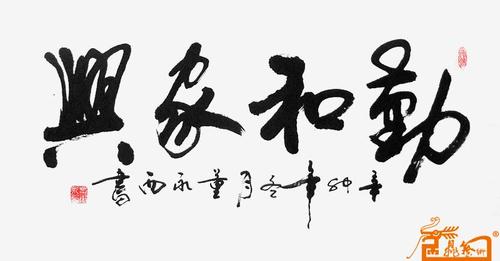 勤和家興
辛卯年冬月董永西書